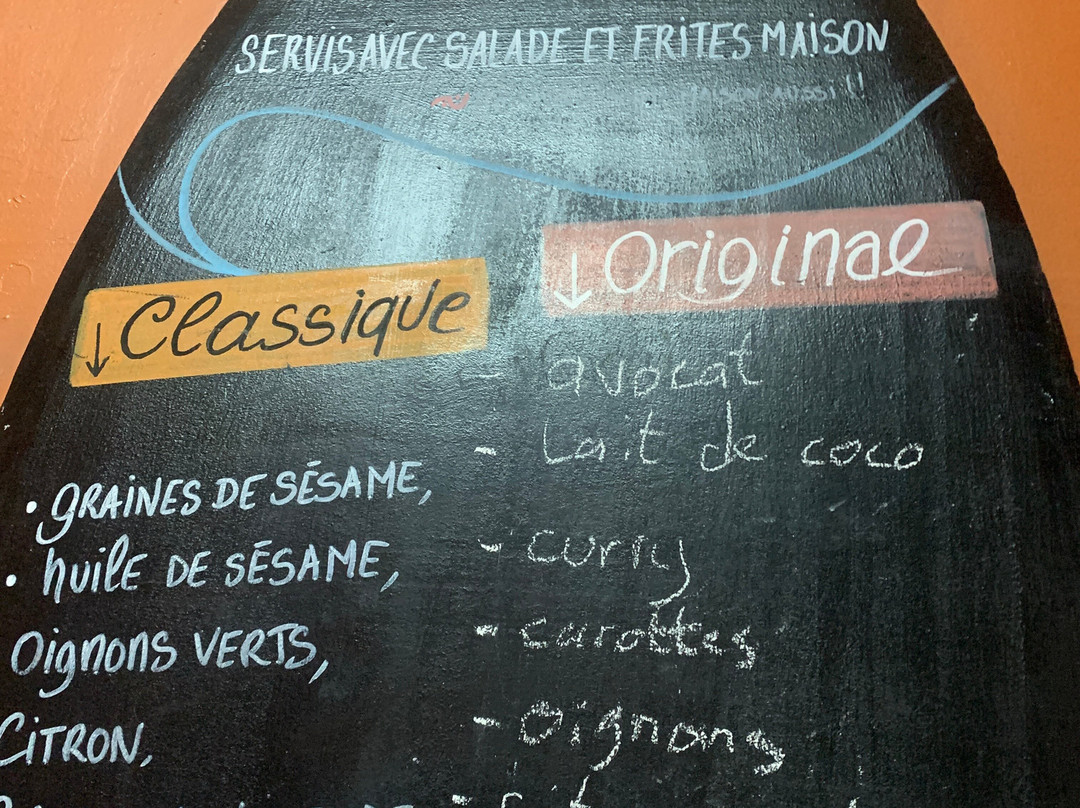 SERVIS AVEC SALADE ET FRITES MAISON
MAISON AUSSI !!
↓ Classique
• GRAINES DE SÉSAME,
• huile DE SÉSAME,
Oignons VERTS,
CITRON,
↓ Original
- avocat
- Lait de coco
- curry
- carottes
- Oignons